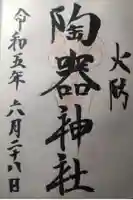 大阪
陶器神社
令和五年六月二十八日